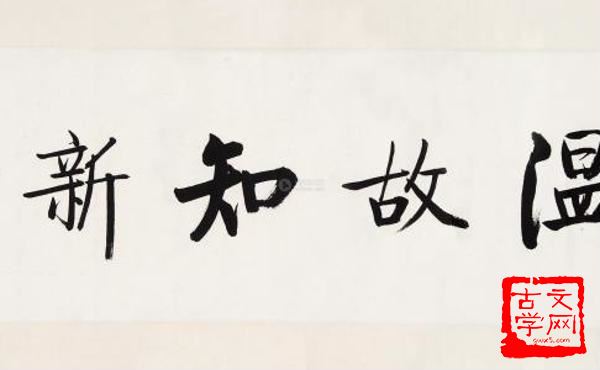 温故知新
古文
学网
gwx5.com